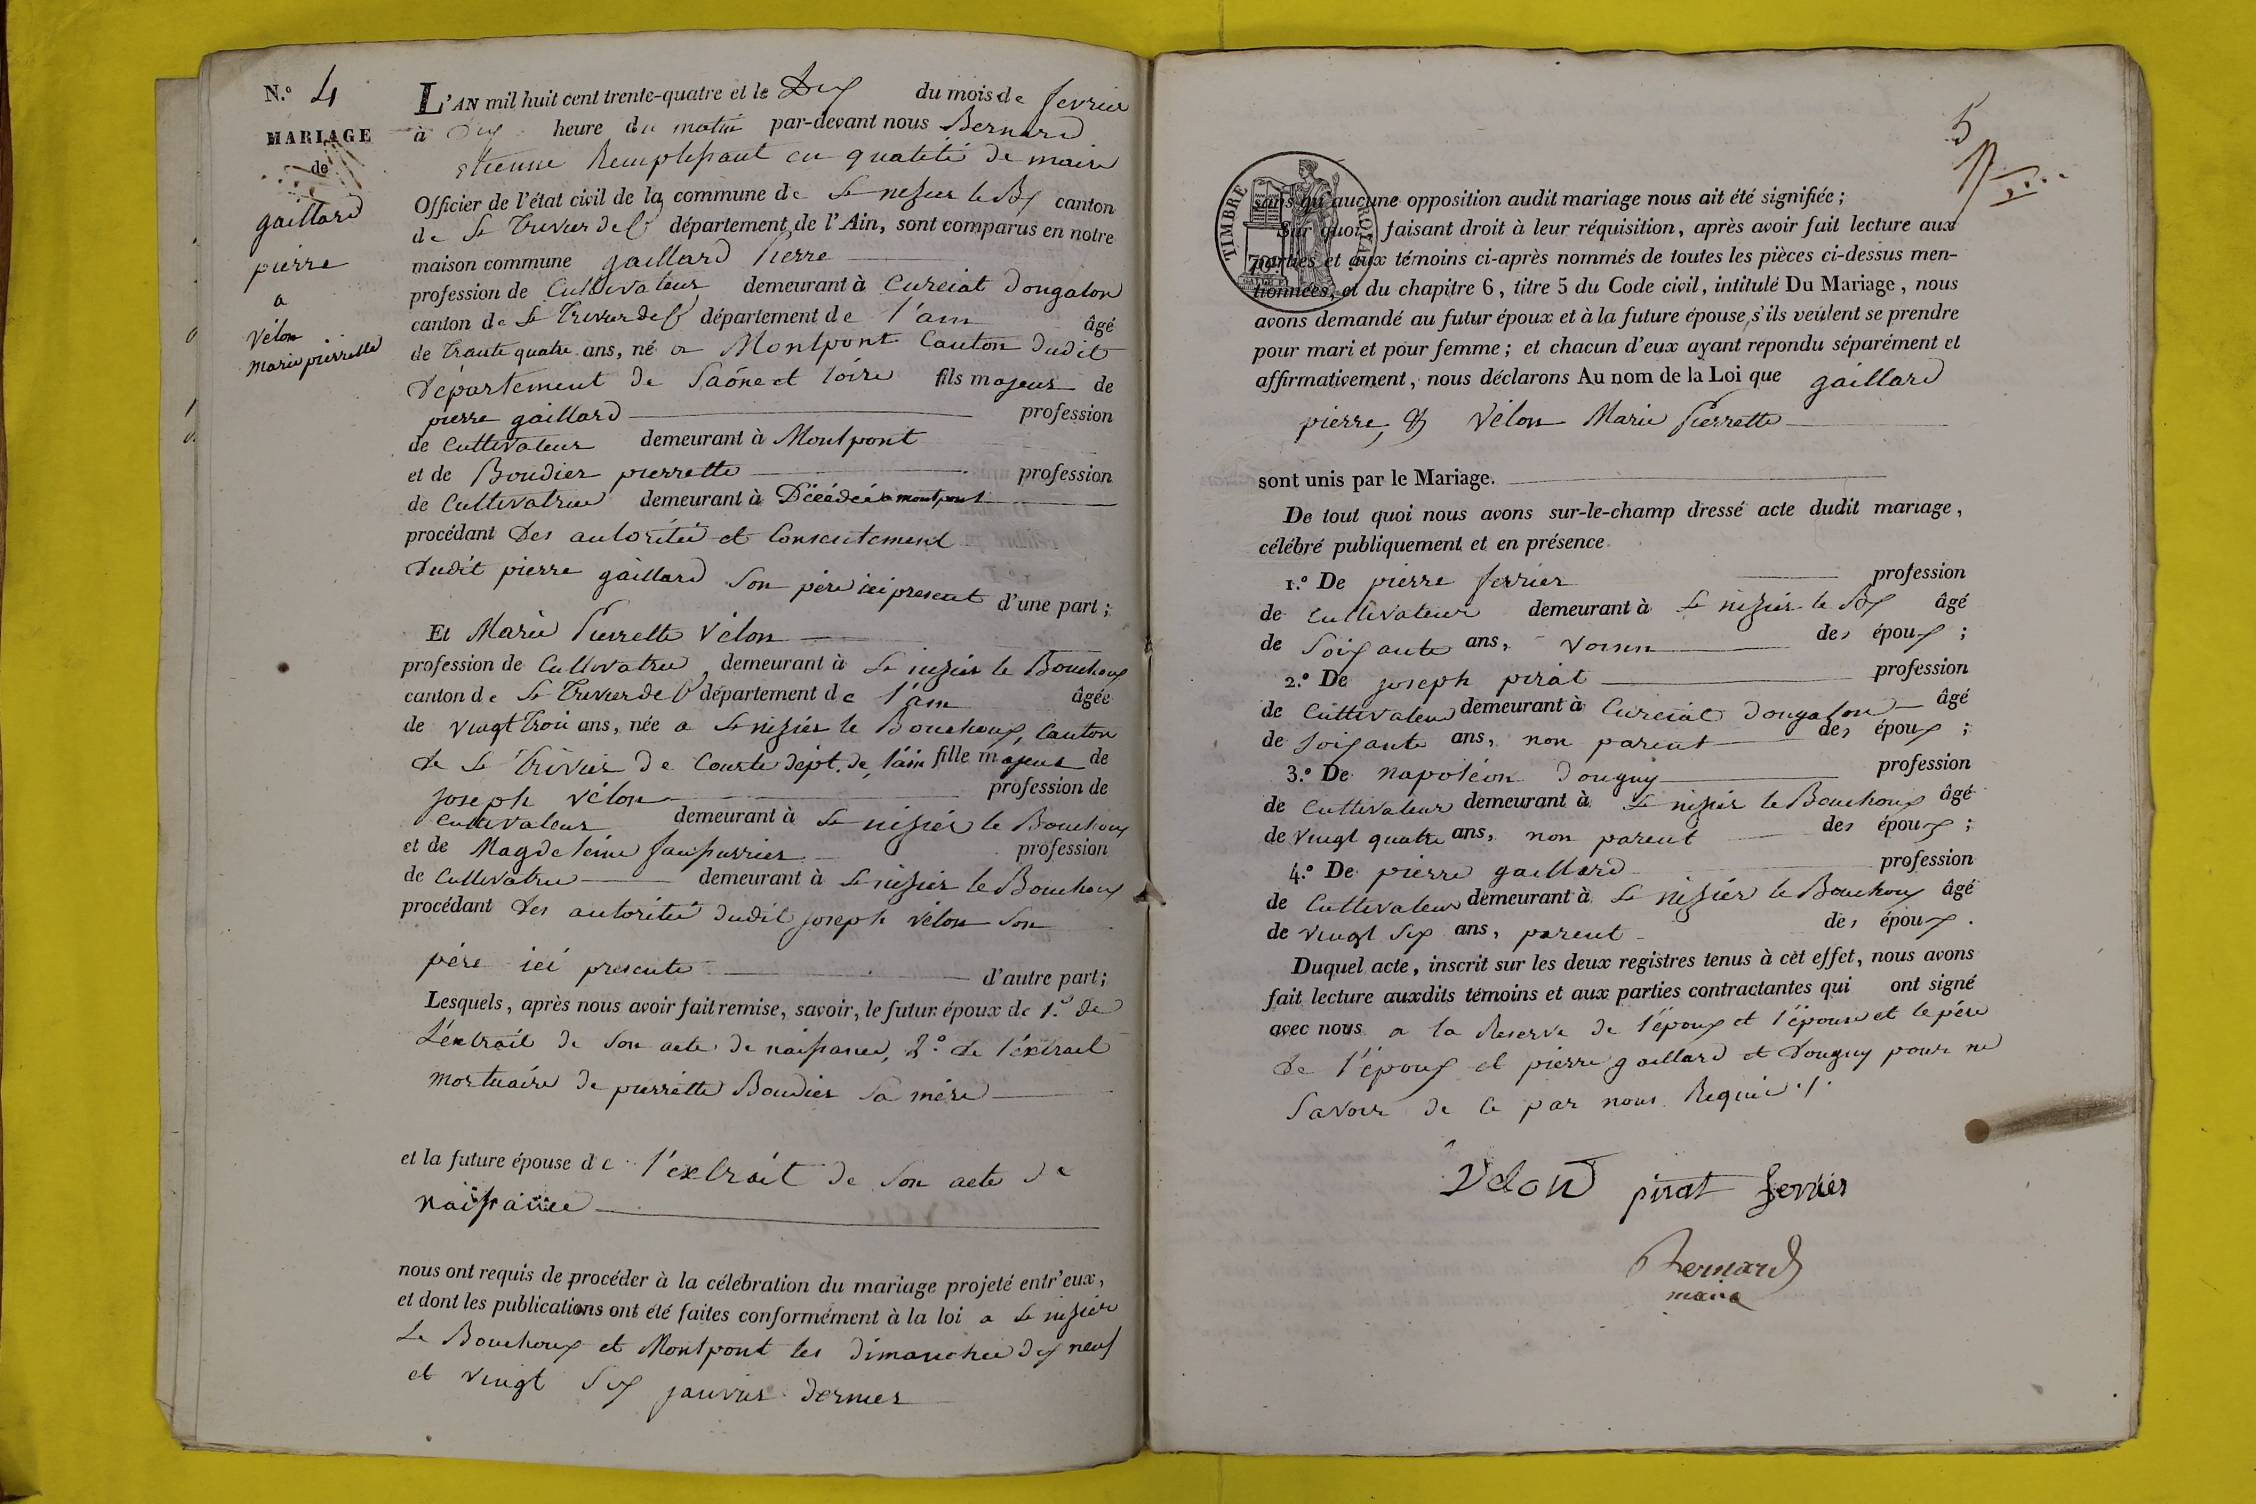 N.o 4
MARIAGE
de
gaillard
pierre
a
Vélon
marie pierrette
L'AN mil huit cent trente-quatre et le Dix du mois de fevrier
à Dix heure du matin par-devant nous Bernard
etienne Remplissant en qualité de maire
Officier de l'état civil de la commune de St nizier le Bx canton
de St Trivier de C département de l'Ain, sont comparus en notre
maison commune gaillard Pierre
profession de Cultivateur demeurant à Curciat Dongalon
canton de St Trivier de C département de l'ain âgé
de Trante quatre ans, né a Montpont Canton dudit
Département de Saône et loire fils majeur de
pierre gaillard profession
de Cultivateur demeurant à Montpont
et de Boudier pierrette profession
de Cultivatrice demeurant à Décédée a montpont
procédant des autorité et Consentement
dudit pierre gaillard Son père ici present d'une part ;
Et Marie Pierrette Vélon
profession de Cultivatrice, demeurant à St nizier le Bouchoux
canton de St Trivier de C département de l'ain âgée
de vingt trois ans, née a St nizier le Bouchoux, Canton
de St Trivier de Courte dépt. de l'ain fille majeur de
joseph vélon profession de
Cultivateur demeurant à St nizier le Bouchoux
et de Magdeleine profession
de Cultivatrice demeurant à St nizier le Bouchoux
procédant des autorité dudit joseph vélon Son
père ici presente d'autre part ;
Lesquels, après nous avoir fait remise, savoir, le futur époux de 1.o de
L'extrait de Son acte de naissance, 2.o de l'extrait
mortuaire de pierrette Boudier Sa mère
et la future épouse de l'extrait de Son acte de
naissance
nous ont requis de procéder à la célébration du mariage projeté entr'eux,
et dont les publications ont été faites conformément à la loi a St nizier
Le Bouchoux et Montpont les dimanches dix neuf
et vingt Six janvier dernier
5
TIMBRE ROYAL
sans qu'aucune opposition audit mariage nous ait été signifiée ;
Sur quoi, faisant droit à leur réquisition, après avoir fait lecture aux
parties et aux témoins ci-après nommés de toutes les pièces ci-dessus men-
tionnées, et du chapitre 6, titre 5 du Code civil, intitulé Du Mariage, nous
avons demandé au futur époux et à la future épouse s'ils veulent se prendre
pour mari et pour femme ; et chacun d'eux ayant répondu séparément et
affirmativement, nous déclarons Au nom de la Loi que gaillard
pierre, & Vélon Marie Pierrette
sont unis par le Mariage.
De tout quoi nous avons sur-le-champ dressé acte dudit mariage,
célébré publiquement et en présence
1.o De pierre ferrier profession
de Cultivateur demeurant à St nizier le Bx âgé
de Soixante ans, voisin des époux ;
2.o De joseph pirat profession
de Cultivateur demeurant à Curciat Dongalon âgé
de Soixante ans, non parent des époux ;
3.o De napoléon Douguy profession
de Cultivateur demeurant à St nizier le Bouchoux âgé
de vingt quatre ans, non parent des époux ;
4.o De pierre gaillard profession
de Cultivateur demeurant à St nizier le Bouchoux âgé
de vingt Six ans, parent des époux.
Duquel acte, inscrit sur les deux registres tenus à cet effet, nous avons
fait lecture auxdits témoins et aux parties contractantes qui ont signé
avec nous a la Reserve de l'époux et l'épouse et le père
de l'époux et pierre gaillard et Douguy pour ne
Savoir de ce par nous Requis ./.
Velon pirat ferrier
Bernard
maire